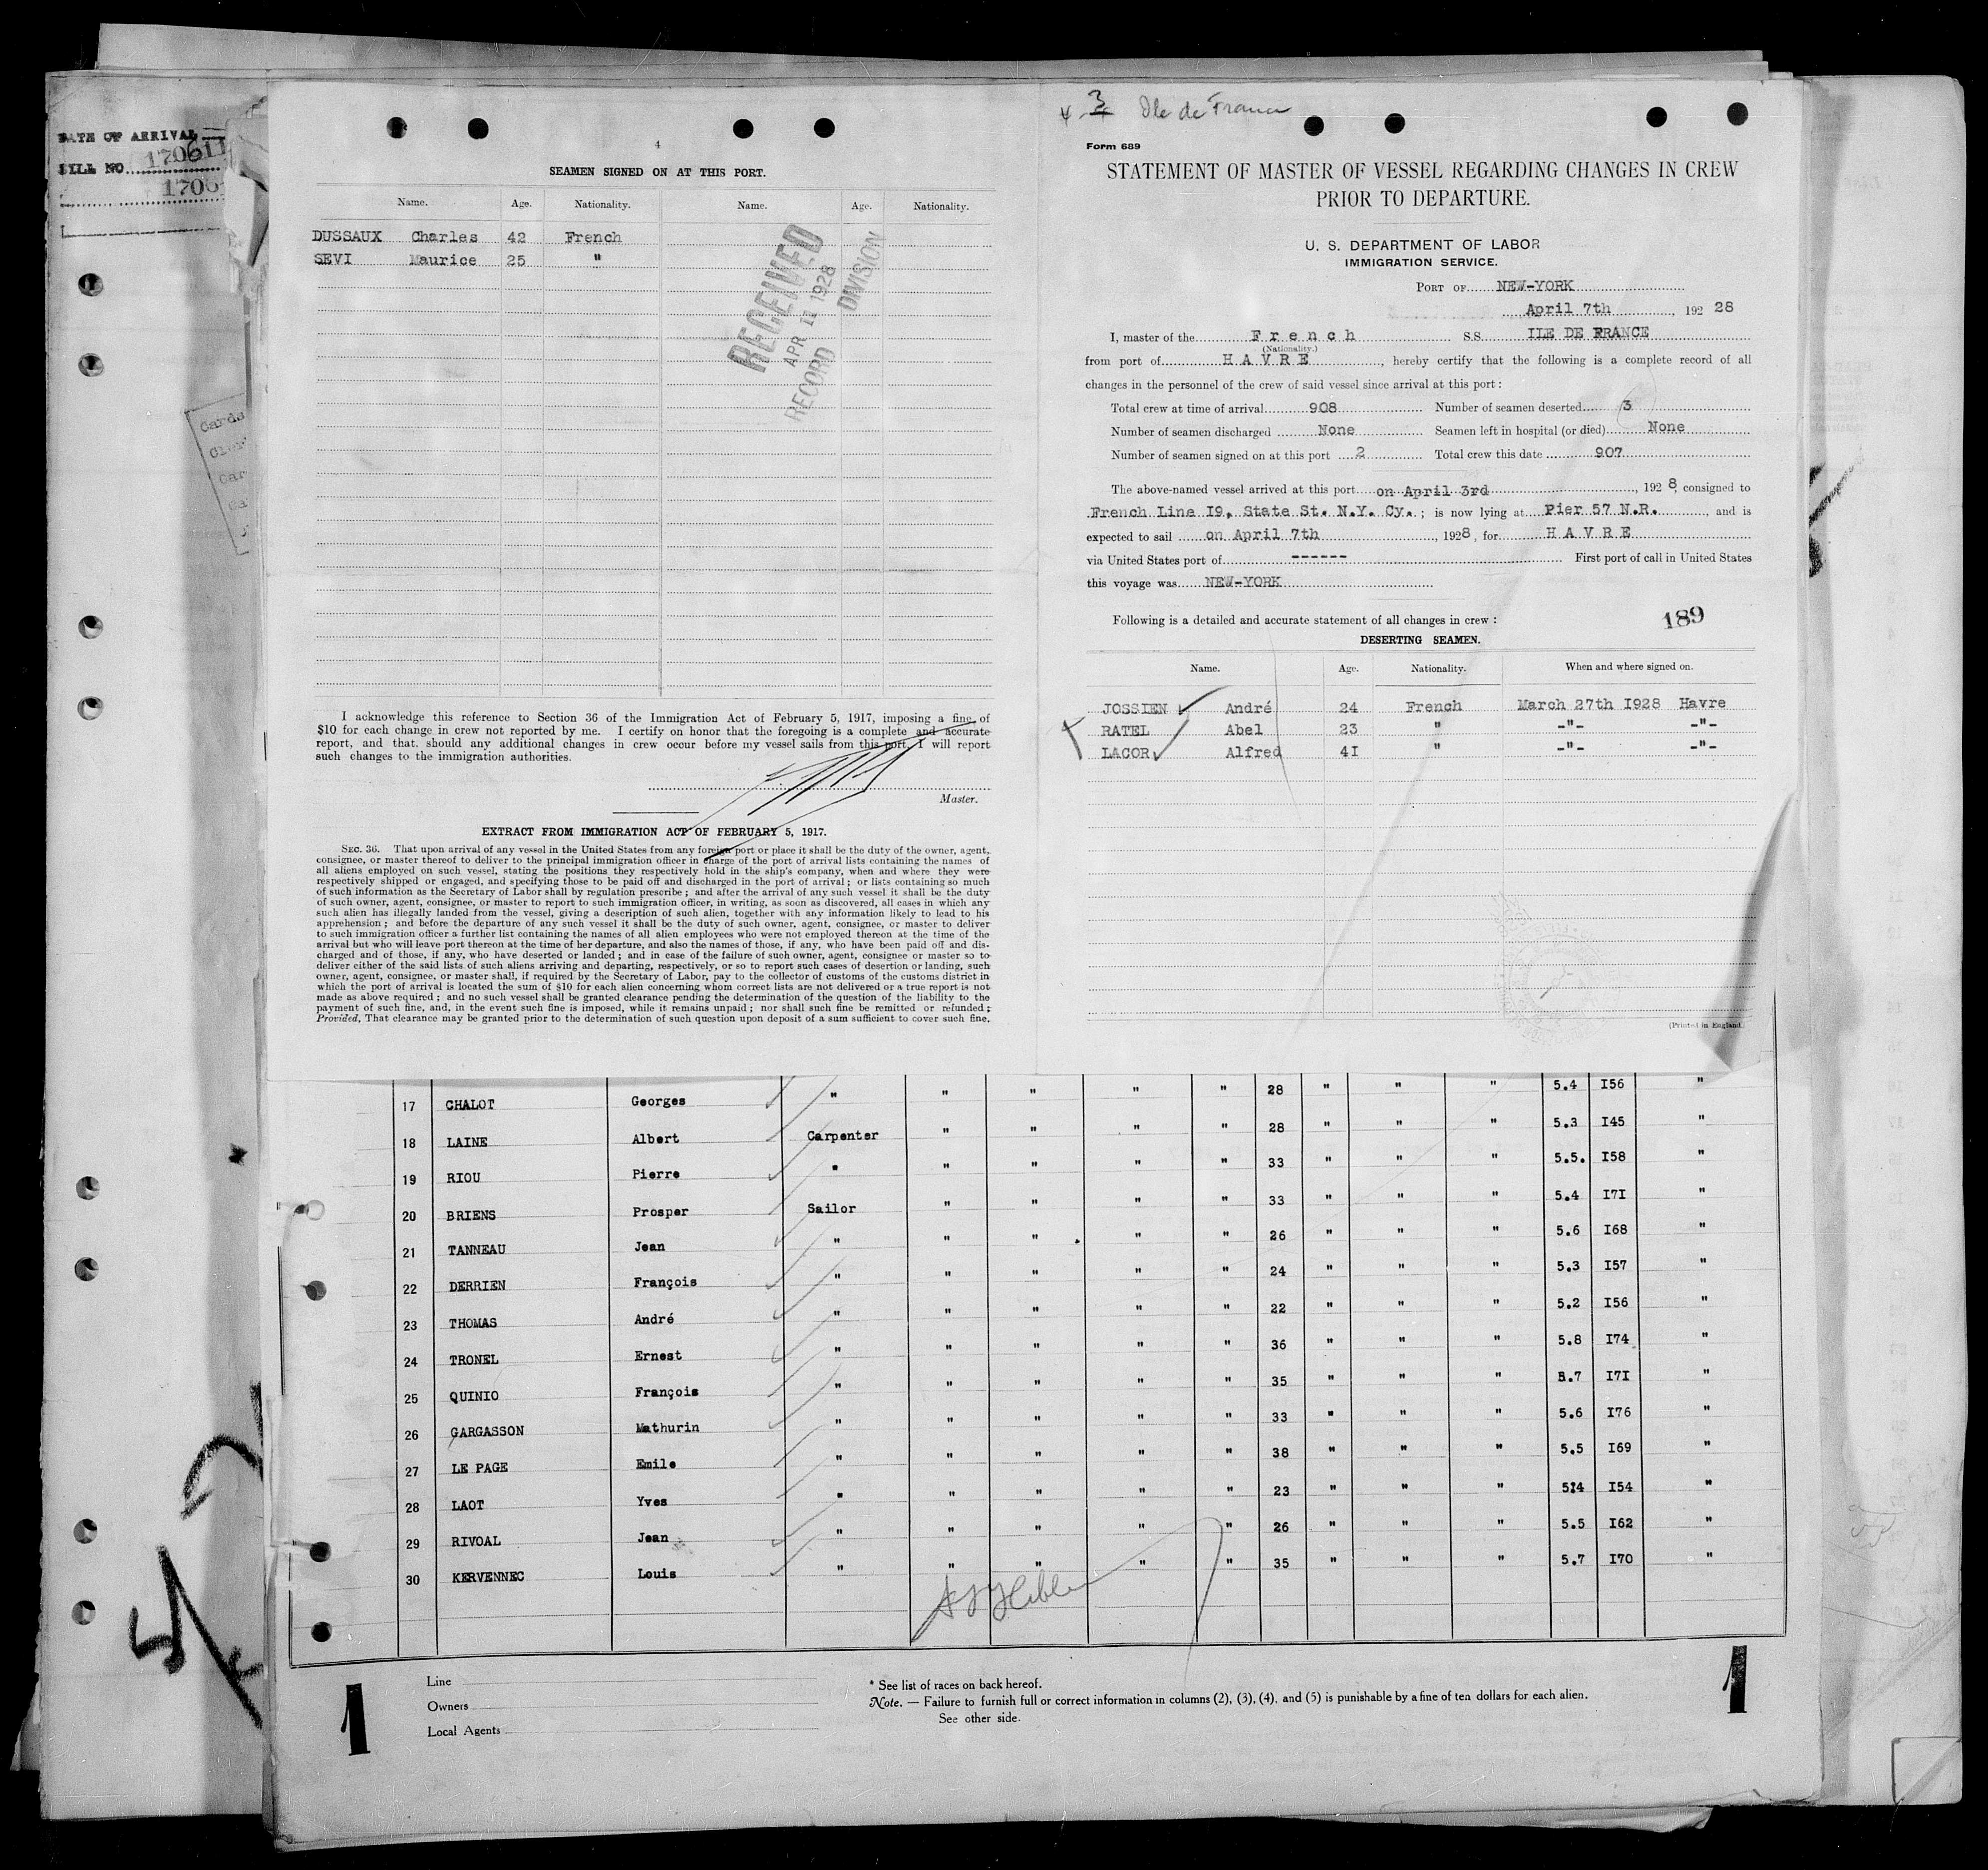 DATE OF ARRIVAL
FILE NO. 170611
1706
4
SEAMEN SIGNED ON AT THIS PORT.
Name. Age. Nationality. Name. Age. Nationality.
DUSSAUX Charles 42 French
SEVI Maurice 25 "
RECEIVED
APR 11 1928
RECORD DIVISION
I acknowledge this reference to Section 36 of the Immigration Act of February 5, 1917, imposing a fine of
$10 for each change in crew not reported by me. I certify on honor that the foregoing is a complete and accurate
report, and that, should any additional changes in crew occur before my vessel sails from this port, I will report
such changes to the immigration authorities.
Master.
EXTRACT FROM IMMIGRATION ACT OF FEBRUARY 5, 1917.
SEC. 36. That upon arrival of any vessel in the United States from any foreign port or place it shall be the duty of the owner, agent,
consignee, or master thereof to deliver to the principal immigration officer in charge of the port of arrival lists containing the names of
all aliens employed on such vessel, stating the positions they respectively hold in the ship's company, when and where they were
respectively shipped or engaged, and specifying those to be paid off and discharged in the port of arrival; or lists containing so much
of such information as the Secretary of Labor shall by regulation prescribe; and after the arrival of any such vessel it shall be the duty
of such owner, agent, consignee, or master to report to such immigration officer, in writing, as soon as discovered, all cases in which any
such alien has illegally landed from the vessel, giving a description of such alien, together with any information likely to lead to his
apprehension; and before the departure of any such vessel it shall be the duty of such owner, agent, consignee, or master to deliver
to such immigration officer a further list containing the names of all alien employees who were not employed thereon at the time of the
arrival but who will leave port thereon at the time of her departure, and also the names of those, if any, who have been paid off and dis-
charged and of those, if any, who have deserted or landed; and in case of the failure of such owner, agent, consignee or master so to
deliver either of the said lists of such aliens arriving and departing, respectively, or so to report such cases of desertion or landing, such
owner, agent, consignee, or master shall, if required by the Secretary of Labor, pay to the collector of customs of the customs district in
which the port of arrival is located the sum of $10 for each alien concerning whom correct lists are not delivered or a true report is not
made as above required; and no such vessel shall be granted clearance pending the determination of the question of the liability to the
payment of such fine, and, in the event such fine is imposed, while it remains unpaid; nor shall such fine be remitted or refunded;
Provided, That clearance may be granted prior to the determination of such question upon deposit of a sum sufficient to cover such fine.
3 Ile de France
Form 689
STATEMENT OF MASTER OF VESSEL REGARDING CHANGES IN CREW
PRIOR TO DEPARTURE.
U. S. DEPARTMENT OF LABOR
IMMIGRATION SERVICE.
PORT OF NEW-YORK
April 7th, 192 28
I, master of the French SS. ILE DE FRANCE
(Nationality.)
from port of HAVRE, hereby certify that the following is a complete record of all
changes in the personnel of the crew of said vessel since arrival at this port:
Total crew at time of arrival 908 Number of seamen deserted 3
Number of seamen discharged None Seamen left in hospital (or died) None
Number of seamen signed on at this port 2 Total crew this date 907
The above-named vessel arrived at this port on April 3rd, 1928, consigned to
French Line I9, State St. N.Y. Cy.; is now lying at Pier 57 N.R., and is
expected to sail on April 7th, 1928, for HAVRE
via United States port of ------ First port of call in United States
this voyage was NEW-YORK
Following is a detailed and accurate statement of all changes in crew:
189
DESERTING SEAMEN.
Name. Age. Nationality. When and where signed on.
JOSSIEN André 24 French March 27th I928 Havre
RATEL Abel 23 " -"- -"-
LACOR Alfred 4I " -"- -"-
(Printed in England.)
17 CHALOT Georges " " " " " 28 " " " 5.4 I56 "
18 LAINE Albert Carpenter " " " " 28 " " " 5.3 I45 "
19 RIOU Pierre " " " " " 33 " " " 5.5. I58 "
20 BRIENS Prosper Sailor " " " " 33 " " " 5.4 I7I "
21 TANNEAU Jean " " " " " 26 " " " 5.6 I68 "
22 DERRIEN François " " " " " 24 " " " 5.3 I57 "
23 THOMAS André " " " " " 22 " " " 5.2 I56 "
24 TRONEL Ernest " " " " " 36 " " " 5.8 I74 "
25 QUINIO François " " " " " 35 " " " 5.7 I7I "
26 GARGASSON Mathurin " " " " " 33 " " " 5.6 I76 "
27 LE PAGE Emile " " " " " 38 " " " 5.5 I69 "
28 LAOT Yves " " " " " 23 " " " 5.4 I54 "
29 RIVOAL Jean " " " " " 26 " " " 5.5 I62 "
30 KERVENNEC Louis " " " " " 35 " " " 5.7 I70 "
Line
Owners
Local Agents
* See list of races on back hereof.
Note. — Failure to furnish full or correct information in columns (2), (3), (4), and (5) is punishable by a fine of ten dollars for each alien.
See other side.
1 1